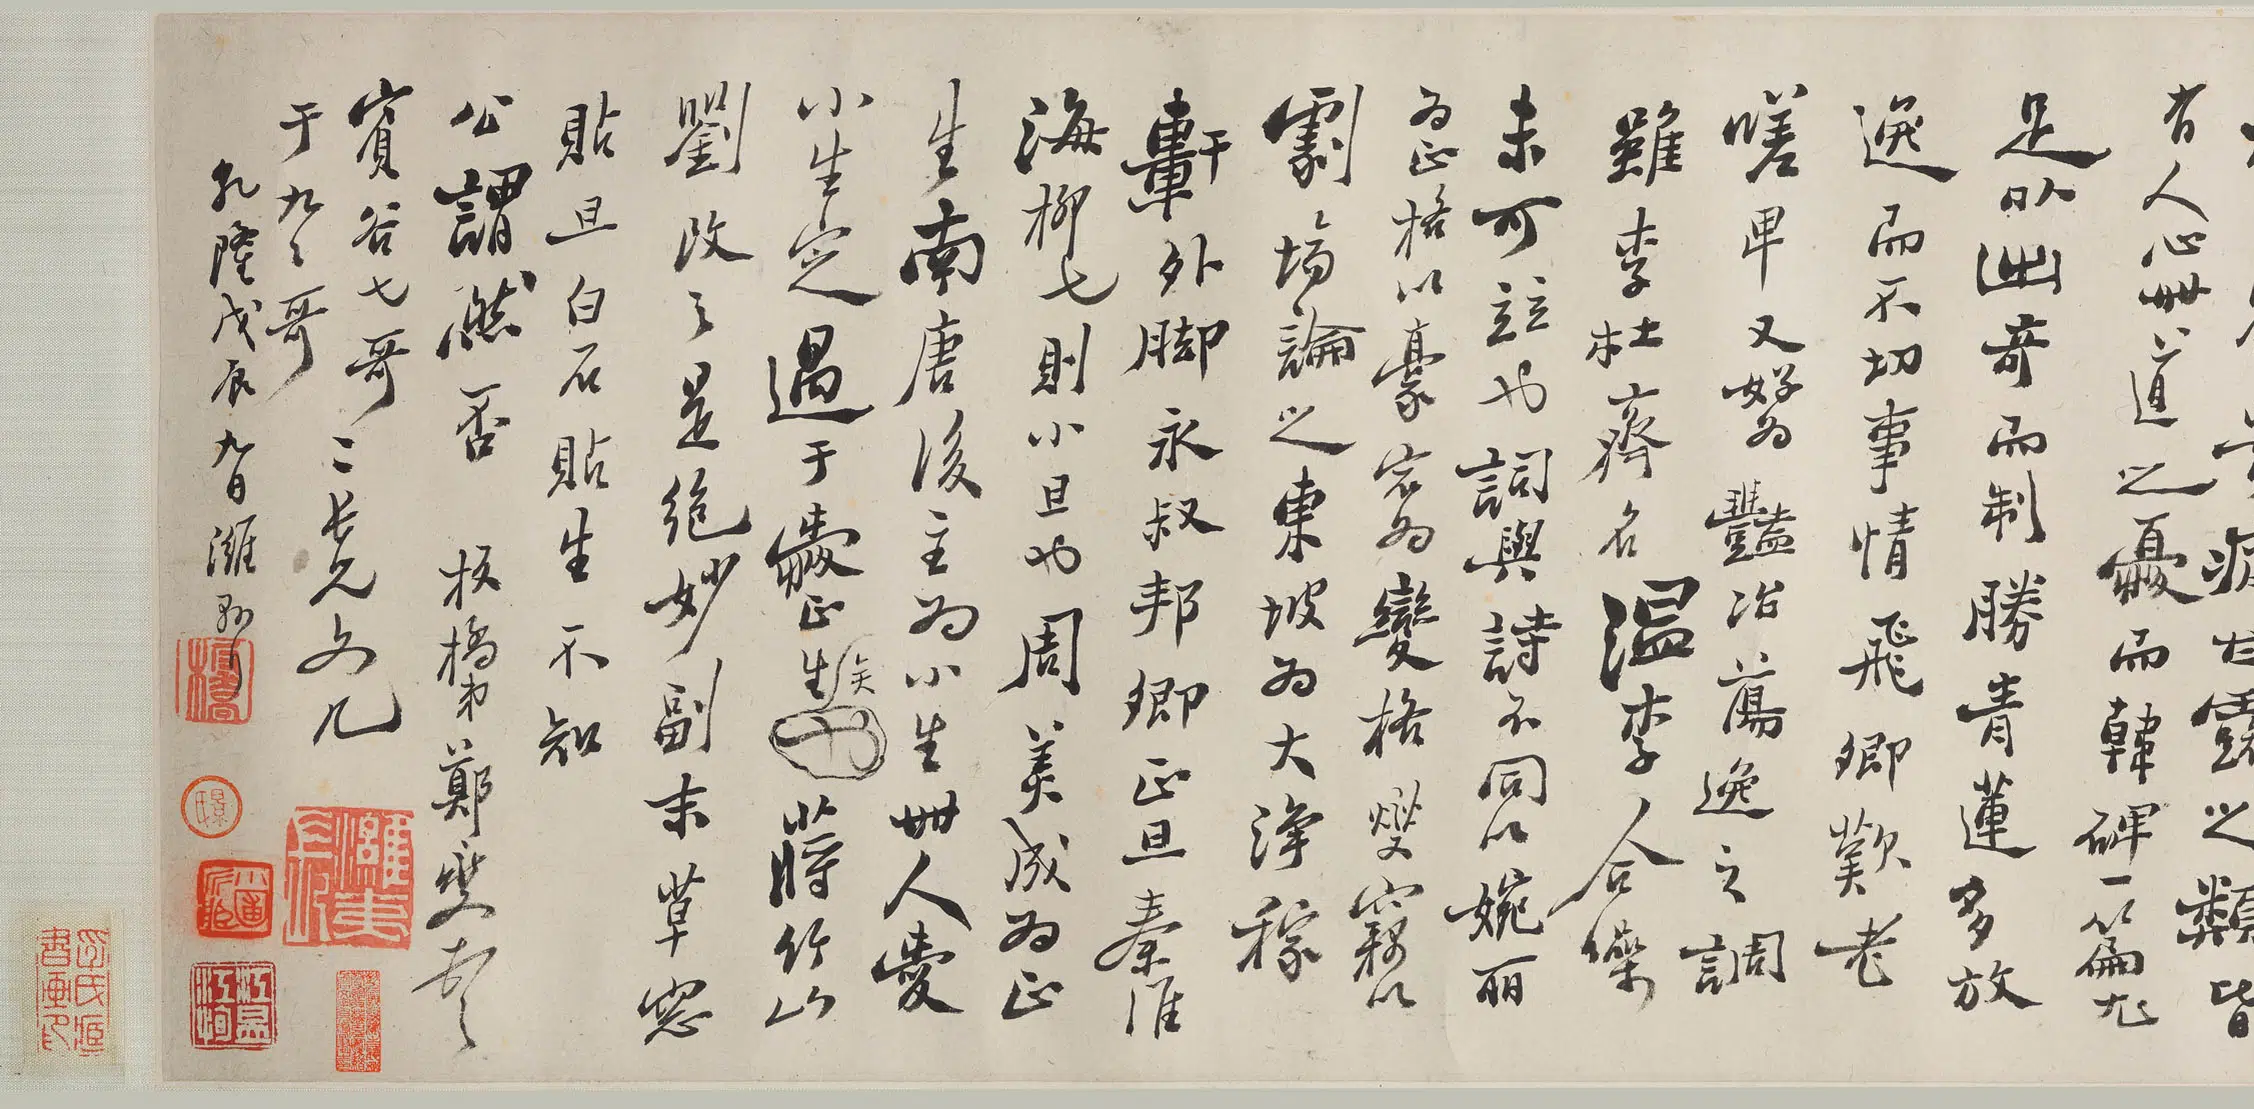 類皆
有人心世道之憂而韓碑一篇尤
足以出奇而制勝青蓮多放
逸而不切事情飛卿歎老
嗟卑又好為豔冶蕩逸之調
雖李杜齊名溫李合
未可並也詞與詩不同以婉丽
為正格以豪宕為變格燮竊以
劇場論之東坡為大淨稼
軒外脚永叔邦卿正旦秦淮
海柳七則小旦也周美成為正
生南唐後主為小生世人愛
小生定過于愛正生矣蔣竹山
劉改之是絕妙副末草窓
貼旦白石貼生不知
公謂然否 板橋弟鄭燮頓
賓谷七哥
于九哥二長兄文几
乾隆戊辰九日濰縣